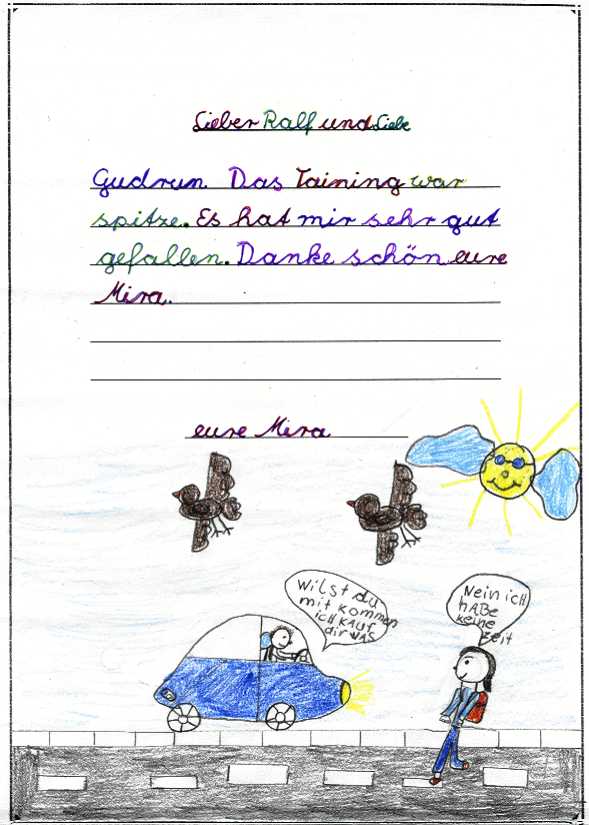 Lieber Ralf und Liebe
Gudrun. Das Taining war
spitze. Es hat mir sehr gut
gefallen. Danke schön eure
Mira.
eure Mira
Wilst du
mit kommen
ich kauf
dir was
Nein ich
hABe
keine
zeit